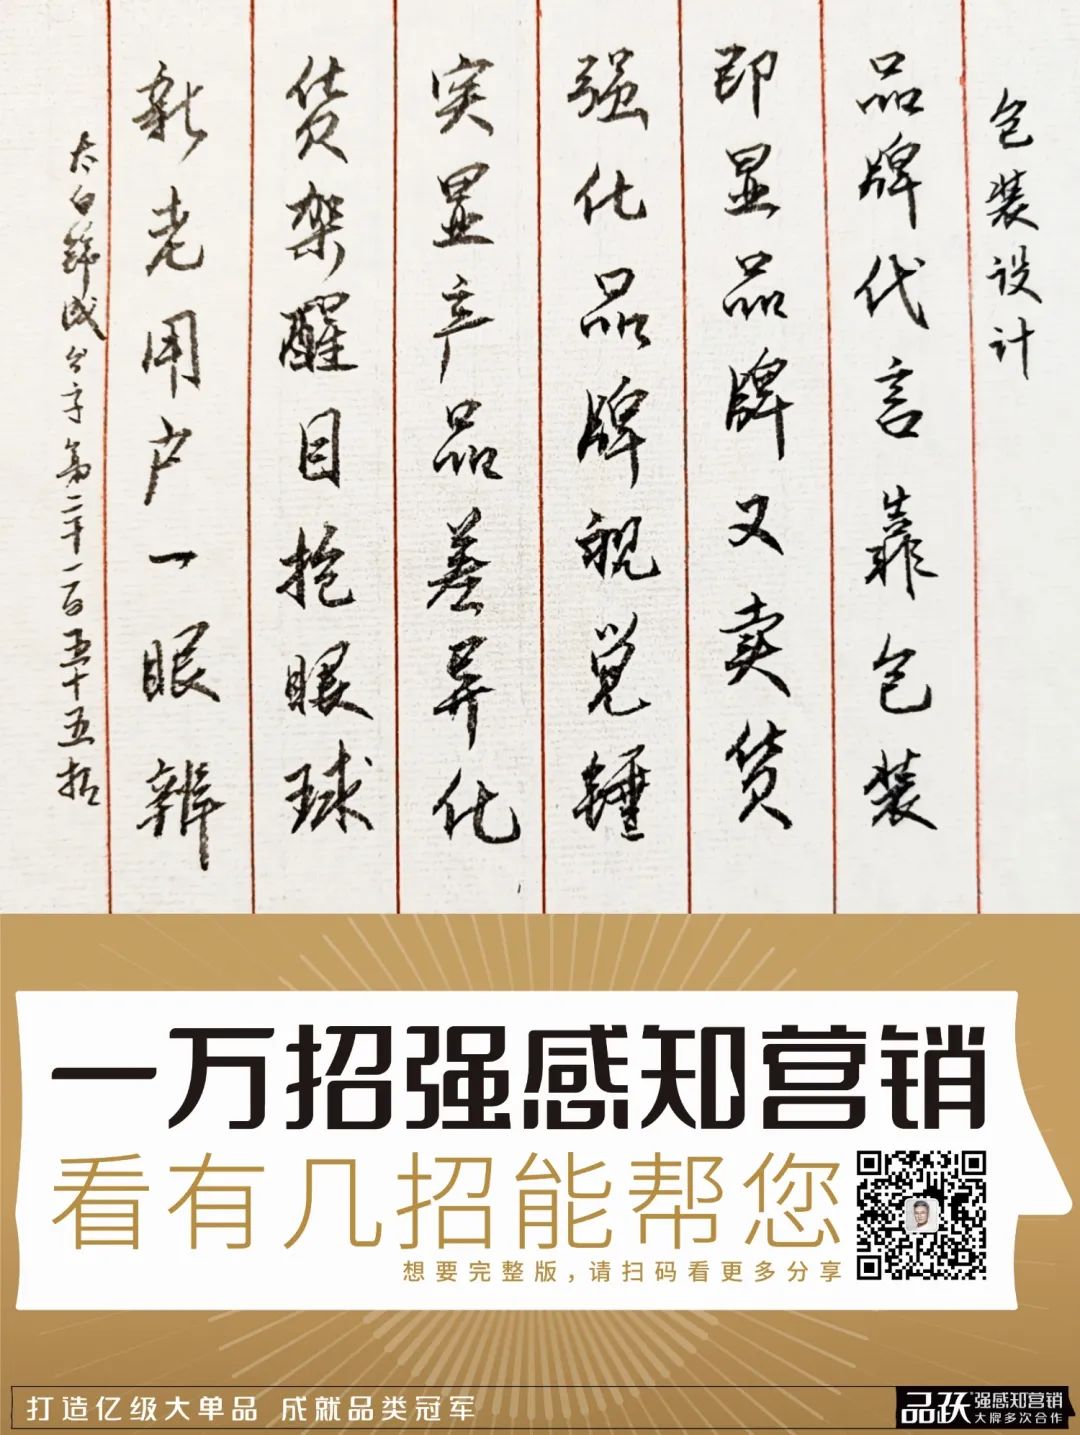 包装设计
品牌代言靠包装
即显品牌又卖货
强化品牌视觉锤
突显产品差异化
货架醒目抱眼球
新老用户一眼辨
太白 成 第二千一百五十五招
一万招强感知营销
看有几招能帮您
想要完整版，请扫码看更多分享
打造亿级大单品 成就品类冠军
品跃
强感知营销
大牌多次合作